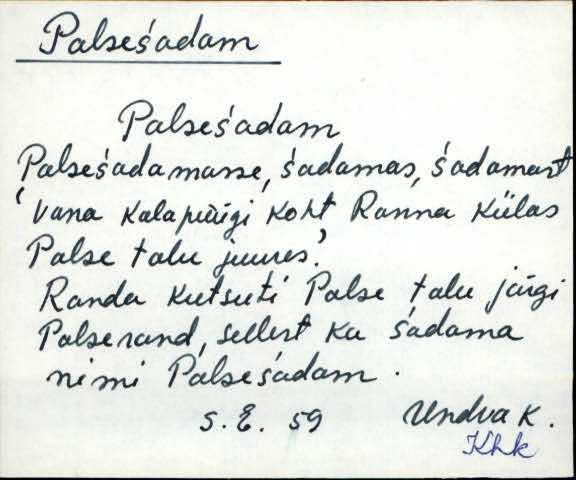 Palseśadam
Palseśadam
Palseśadamasse, śadamas, śadamast
'Vana kalapüügi koht Ranna külas
Palse talu juures.'
Randa kutsuti Palse talu järgi
Palserand, sellest ka śadama
nimi Palseśadam.
S. E. 59 Undva k.
Khk